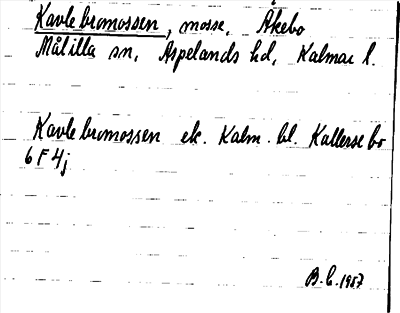 Kavlebromossen, mosse, Åkebo
Målilla sn, Aspelands hd, Kalmar l.
Kavlebromossen ek. Kalm. bl. Kallersebo
6 F 4j
B.C. 1957